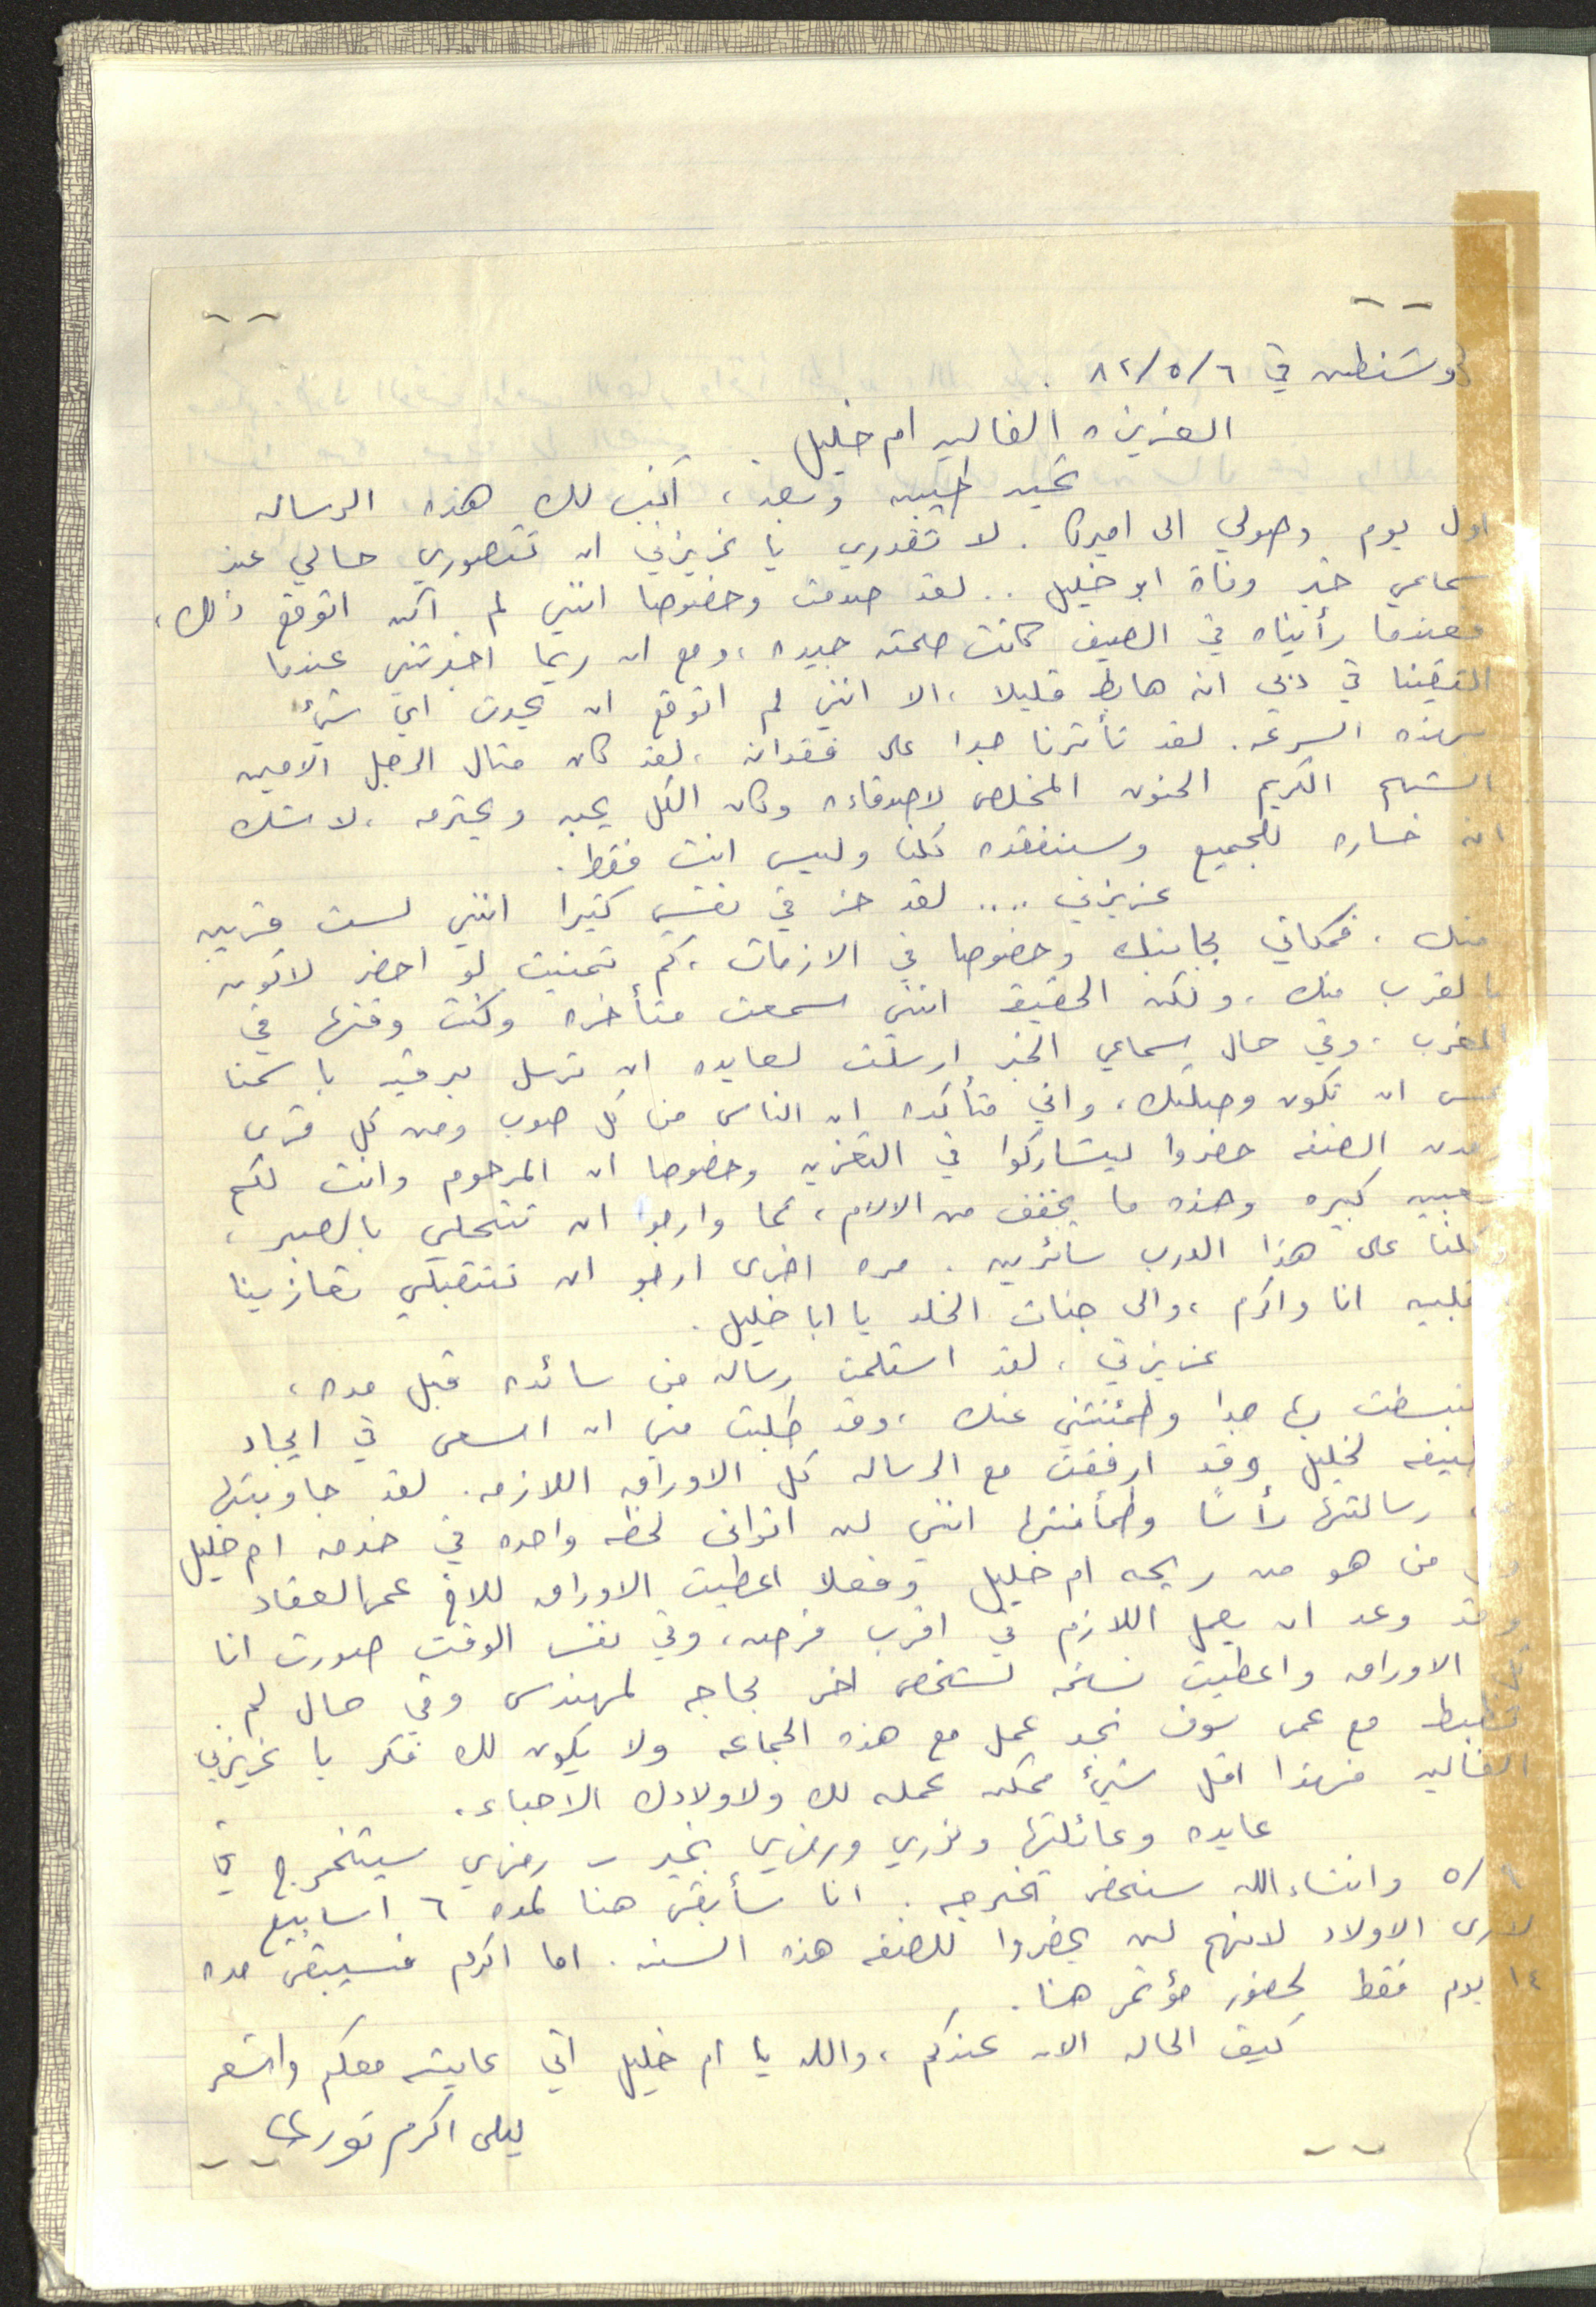 وشنطن في ٦/٥/٨٢ .
العزيزه الغاليه ام خليل .
تحيه طيبه وبعد ، اكتب لك هذه الرساله
اول يوم وصولي الى اميركا . لا تقدري يا عزيزتي ان تتصوري حالي عند
سماعي خبر وفاة ابو خليل .. لقد صدمت وخصوصا انني لم اكن اتوقع ذلك ،
فعندما رأيناه في الصيف كانت صحته جيده ، ومع ان ريما اخبرتني عندما
التقينا في دبي انه هابط قليلا ، الا انني لم اتوقع ان يحدث اي شيء
بهذه السرعه . لقد تأثرنا جدا على فقدانه ، لقد كان مثال الرجل الامين
الشهم الكريم الحنون المخلص لاصدقاءه وكان الكل يحبه ويحترمه ، لا شك
انه خساره للجميع وسنفتقده كلنا وليس انت فقط .
عزيزتي .... لقد حز في نفسي كثيرا انني لست قريبه
منك . فمكاني بجانبك وخصوصا في الازمات ، كم تمنيت لو احضر لاكون
بالقرب منك ، ولكن الحقيقه انني سمعت متأخره وكنت وقتها في
المغرب ، وفي حال سماعي الخبر ارسلت لعايده ان ترسل برقيه باسمنا
عسى ان تكون وصلتك ، واني متأكده ان الناس من كل صوب ومن كل قرى
ومدن الضفه حضروا ليشاركوا في التعزيه وخصوصا ان المرحوم وانت لكم
شعبيه كبيره وهذه ما يخفف من الالام ، كما وارجو ان تتحلي بالصبر ،
وكلنا على هذا الدرب سائرين . مره اخرى ارجو ان تتقبلي تعازينا
القلبيه انا واكرم ، والى جنات الخلد يا ابا خليل .
عزيزتي ، لقد استلمت رساله من سائده قبل مده ،
انبسطت بها جدا وطمئنتني عنك ، وقد طلبت مني ان اسعى في ايجاد
وظيفه لخليل وقد ارفقت مع الرساله كل الاوراق اللازمه . لقد جاوبتها
على رسالتها رأسًا وطمأنتها انني لن اتوانى لحظه واحده في خدمه ام خليل
من هو من ريحه ام خليل وفعلا اعطيت الاوراق للاخ عمر العقاد
وقد وعد ان يعمل اللازم في اقرب فرصه ، وفي نفس الوقت صورت انا
الاوراق واعطيت نسخه لشخص اخر بحاجه لمهندس وفي حال لم
تظبط مع عمر سوف نجد عمل مع هذه الجماعه ولا يكون لك فكر يا عزيزتي
الغاليه فهذا اقل شيء ممكن عمله لك ولاولادك الاحباء .
عايده وعائلتها ونوري ورمزي بخير - رمزي سيتخرج في
٥/ وانشاءالله سنحضر تخرجه . انا سأبقى هنا لمده ٦ اسابيع
لارى الاولاد لانهم لن يحضروا للضفه هذه السنه . اما اكرم فسيبقى مده
١٤ يوم فقط لحضور مؤتمر هنا .
كيف الحاله الان عندكم ، والله يا ام خليل اني عايشه معكم واشعر
ليلى اكرم